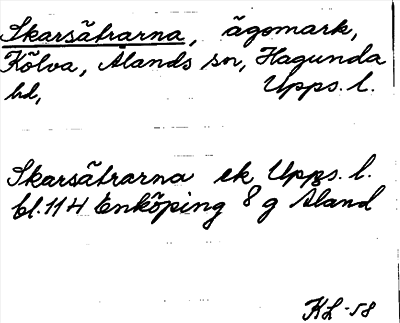 Skarsätrarna, ägomark,
Kölva, Ålands sn, Hagunda
hd, Upps. l.
Skarsätrarna ek Upps. l.
bl. 114 Enköping 8 g Åland
KL-58